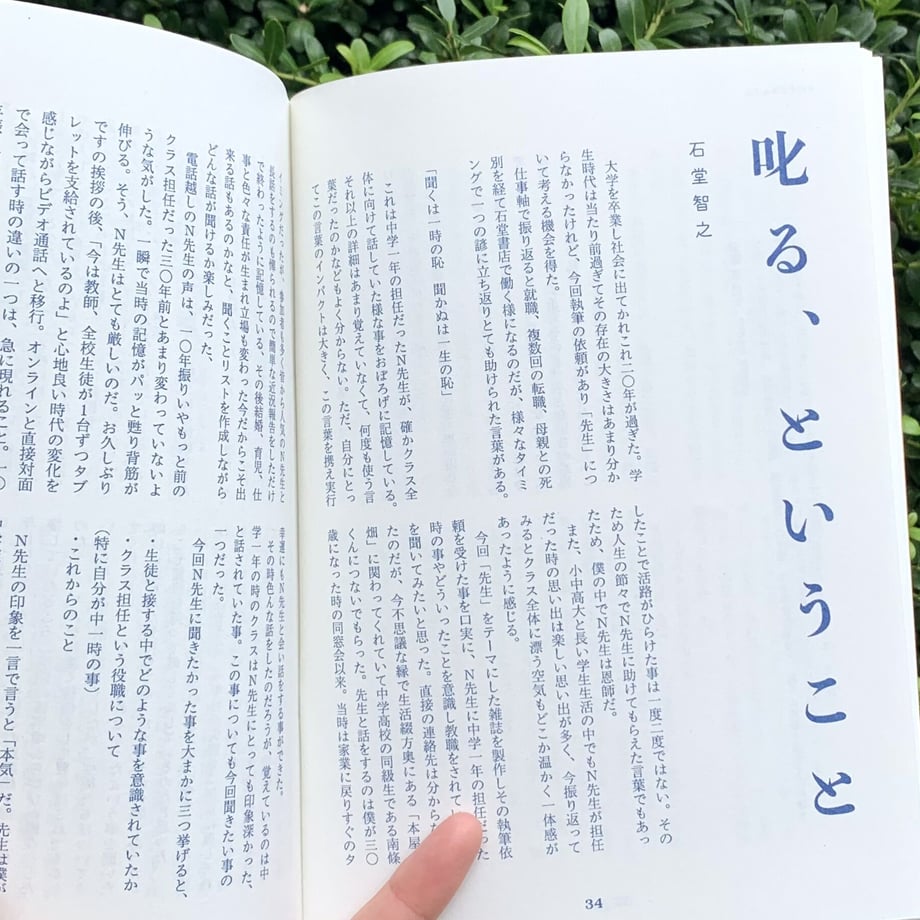 叱る、ということ
石堂智之
大学を卒業し社会に出てかれこれ二〇年が過ぎた。学
生時代は当たり前過ぎてその存在の大きさはあまり分か
らなかったけれど、今回執筆の依頼があり「先生」につ
いて考える機会を得た。
仕事軸で振り返ると就職、複数回の転職、母親との死
別を経て石堂書店で働く様になるのだが、様々なタイミ
ングで一つの諺に立ち返りとても助けられた言葉がある。
「聞くは一時の恥　聞かぬは一生の恥」
これは中学一年の担任だったN先生が、確かクラス全
体に向けて話していた様な事をおぼろげに記憶している。
それ以上の詳細はあまり覚えていなくて、何度も使う言
葉だったのかなどもよく分からない。ただ、自分にとっ
てこの言葉のインパクトは大きく、この言葉を携え実行
したことで活路がひらけた事は一度二度ではない。その
ため人生の節々でN先生に助けてもらえた言葉でもあっ
たため、僕の中でN先生は恩師だ。
また、小中高大と長い学生生活の中でもN先生が担任
だった時の思い出は楽しい思い出が多く、今振り返って
みるとクラス全体に漂う空気もどこか温かく一体感が
あったように感じる。
今回「先生」をテーマにした雑誌を製作しその執筆依
頼を受けた事を口実に、N先生に中学一年の担任だった
時の事やどういったことを意識し教職をされて
を聞いてみたいと思った。直接の連絡先は分から
たのだが、今不思議な縁で生活綴方奥にある「本屋
畑」に関わってくれていて中学高校の同級生である南條
くんにつないでもらった。先生と話をするのは僕が三〇
歳になった時の同窓会以来。当時は家業に戻りすぐのタ
34
イミングだったが、参加者も多く皆から人気のN先生と
長話をするのも憚られるので簡単な近況報告をしただけ
で終わったように記憶している、その後結婚、育児、仕
事と色々な責任が生まれ立場も変わった今だからこそ出
来る話もあるのかなと、聞くことリストを作成しながら
どんな話が聞けるか楽しみだった、
電話越しのN先生の声は、一〇年振りいやもっと前の
クラス担任だった三〇年前とあまり変わっていないよ
うな気がした。一瞬で当時の記憶がパッと甦り背筋が
伸びる。そう、N先生はとても厳しいのだ。お久しぶり
ですの挨拶の後、「今は教師、全校生徒が1台ずつタブ
レットを支給されているのよ」と心地良い時代の変化を
感じながらビデオ通話へと移行。オンラインと直接対面
で会って話す時の違いの一つは、急に現れること。一〇
幸運にもN先生と会い話をする事ができた。
その時色んな話をしたのだろうが、覚えているのは中
学一年の時のクラスはN先生にとっても印象深かった、
と話されていた事。この事についても今回聞きたい事の
一つだった。
今回N先生に聞きたかった事を大まかに三つ挙げると、
・生徒と接する中でどのような事を意識されていたか
・クラス担任という役職について
（特に自分が中一時の事）
・これからのこと
N先生の印象を一言で言うと「本気」だ。先生は僕が